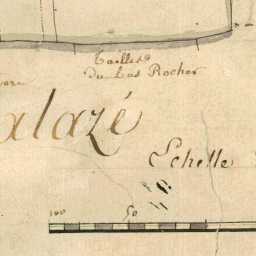 Tailles
du Bas Rocher
alazé
Echelle
100 50